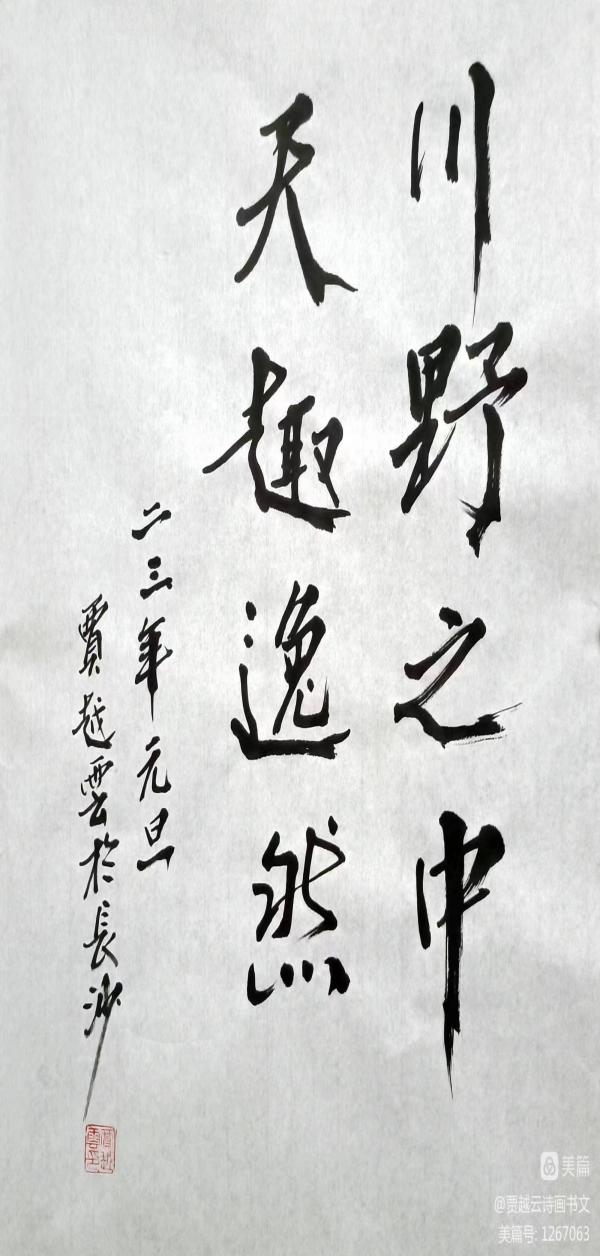 川野之中
天趣逸然
二三年元旦
賈越雲於長沙
賈越雲印
美篇
@贾越云诗画书文
美篇号: 1267063